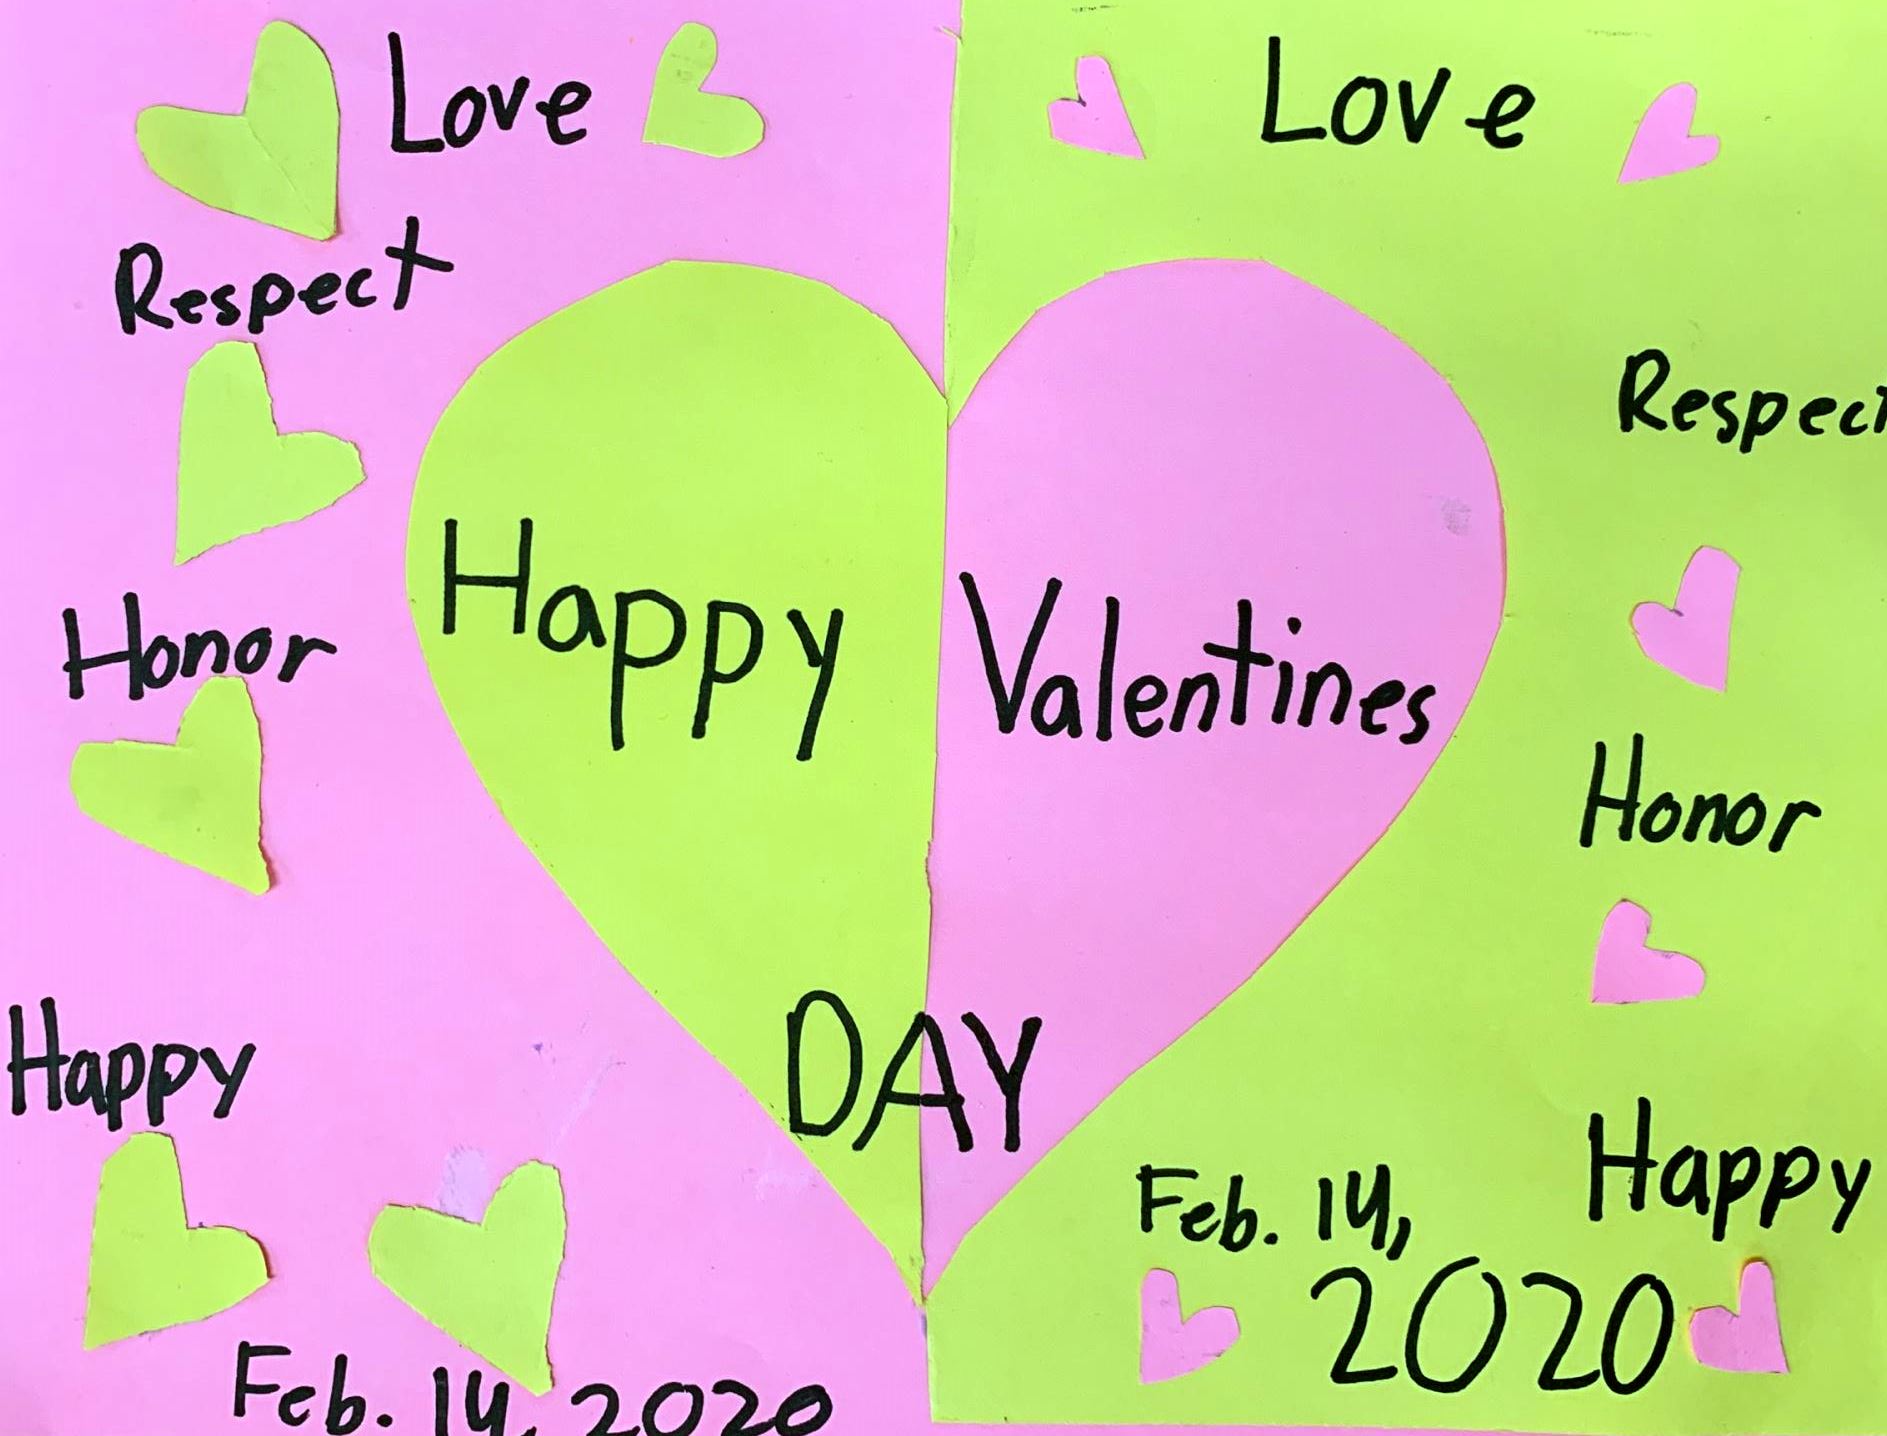 Love
Respect
Honor
Happy
Feb. 14, 2020
Happy Valentines
DAY
Love
Respect
Honor
Happy
Feb. 14,
2020